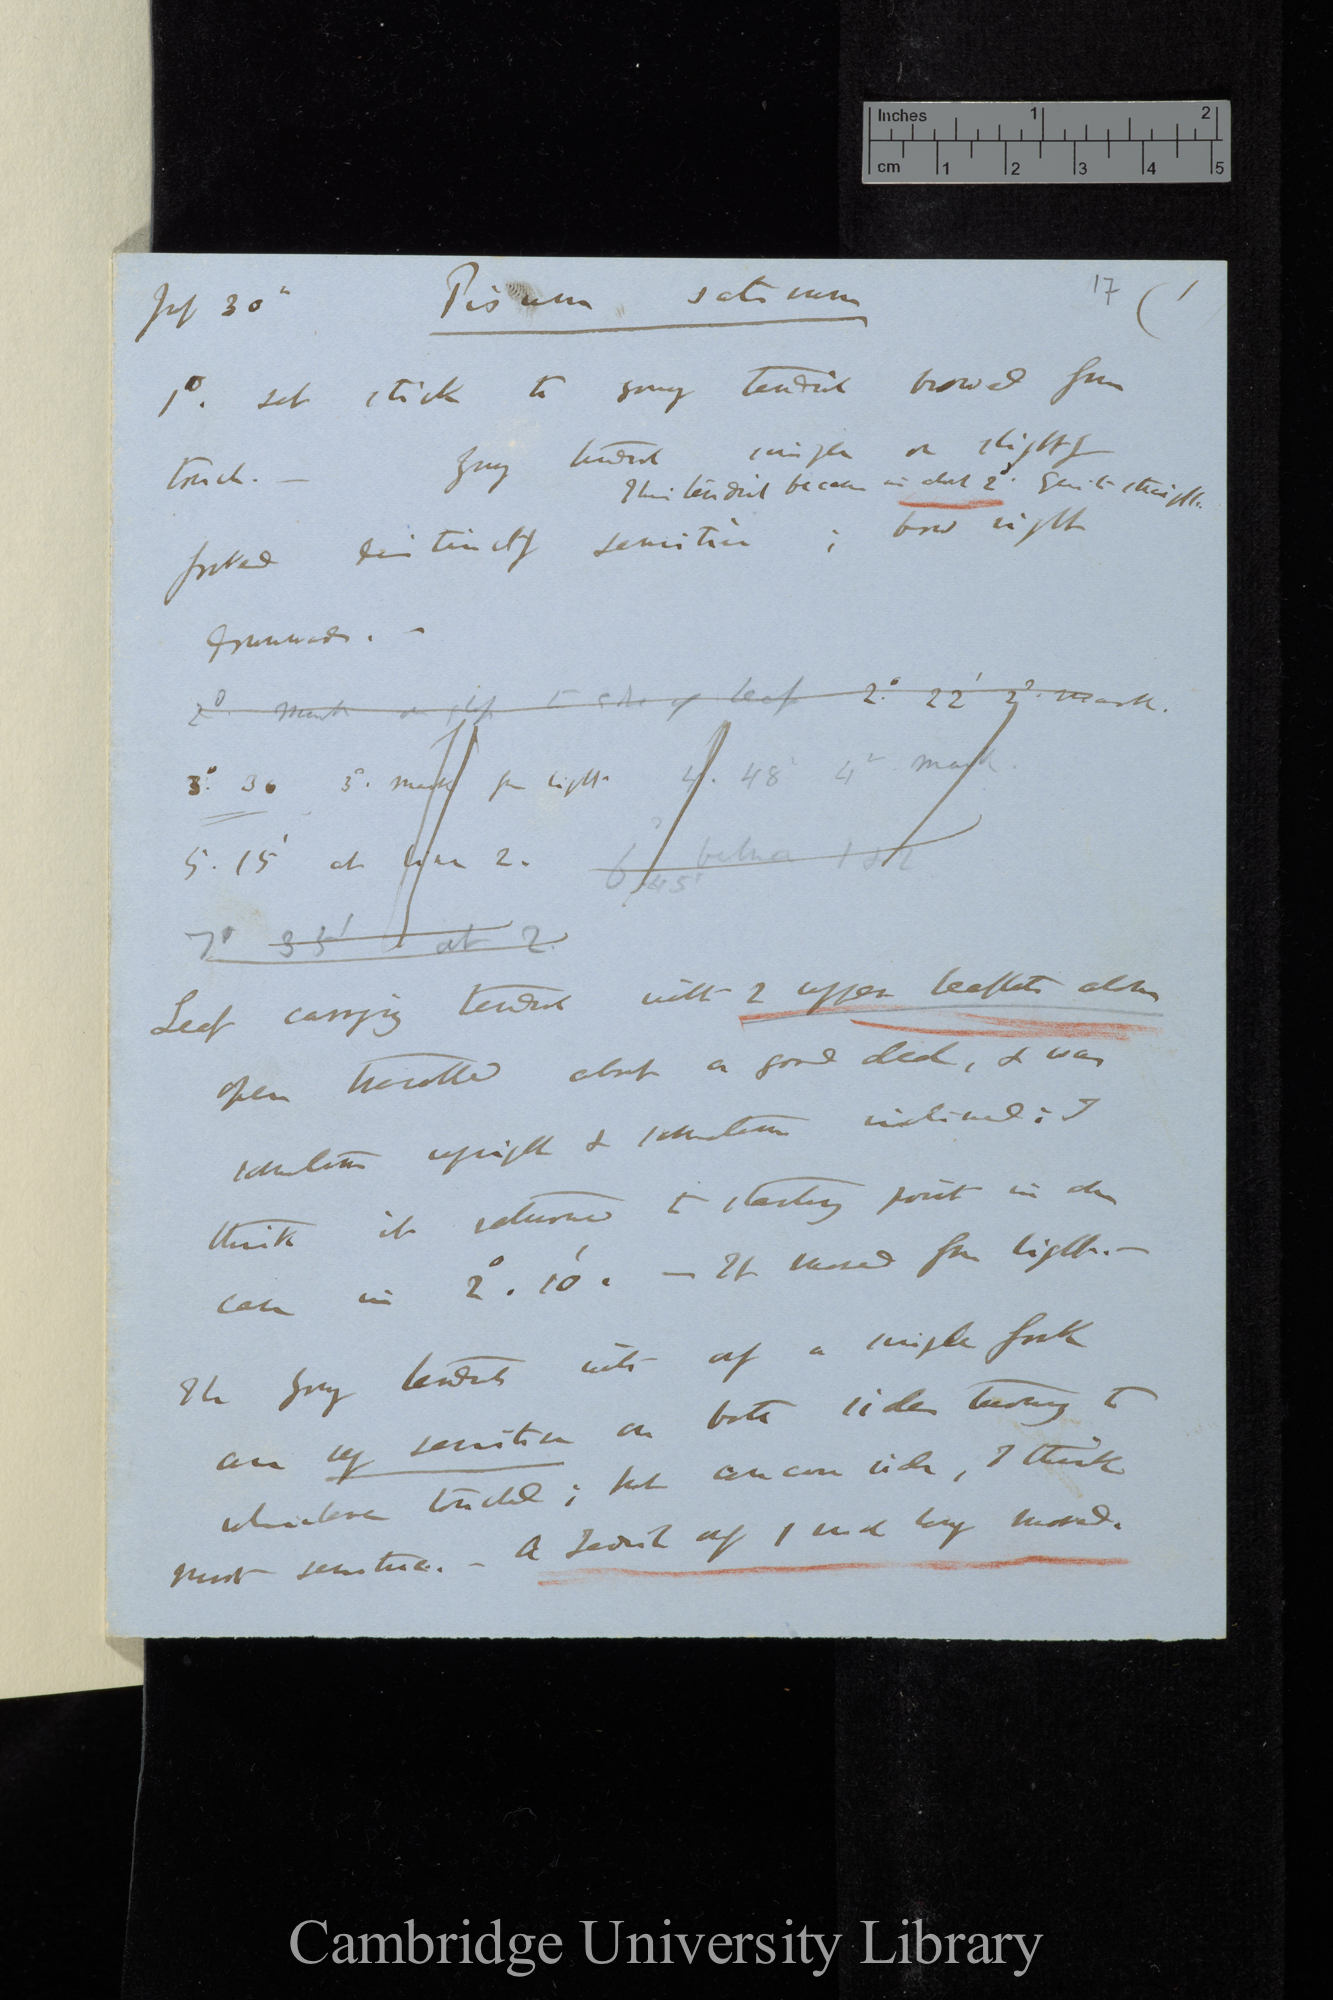 Inches 1 2
cm 1 2 3 4 5
30" Pisum sativum 17 (1
1°. set stick to young tendril bowed from
touch. — Young tendril single or slightly
This tendril became in about 2°. quite straight.
forked distinctly sensitive ; bow right
downwards. —
2°. mark on to side of leaf 2°. 22' 2°. mark.
3°. 30 3°. mark for light 4. 48' 4° mark.
5. 15' at line 2. 6° 45' below 1 & 2
7° 35' at 2.
Leaf carrying tendril with 2 upper leaflets alone
open travelled about a good deal, & was
sometimes upright & sometimes inclined; I
think it returned to starting point in one
case in 2°. 10'. — It moved from light. —
The young tendrils with only a single fork
are very sensitive on both sides turning to
whichever touched ; but concave side, I think
most sensitive. — A tendril only 1 inch long moved.
Cambridge University Library